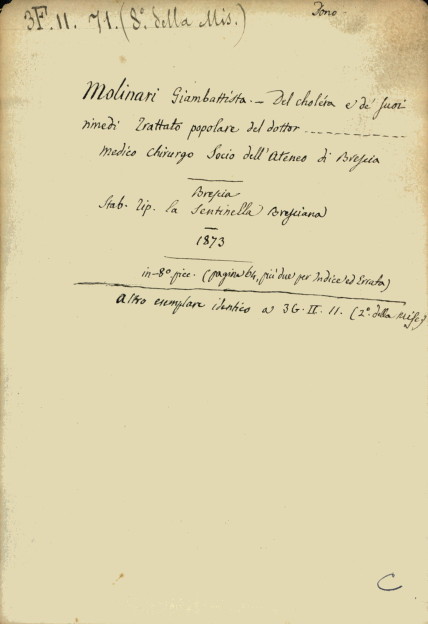 3F. II. 71. (8º della Mis.)
Dono -
Molinari Giambattista. - Del choléra e de' suoi
rimedi Trattato popolare del dottor
medico chirurgo Socio dell'Ateneo di Brescia
Brescia
Stab. Tip. la Sentinella Bresciana
1873
in-8º picc. (pagine 64, più due per Indice ed Errata)
Altro esemplare identico a 3G. II. 11. (2º della Misc.)
C